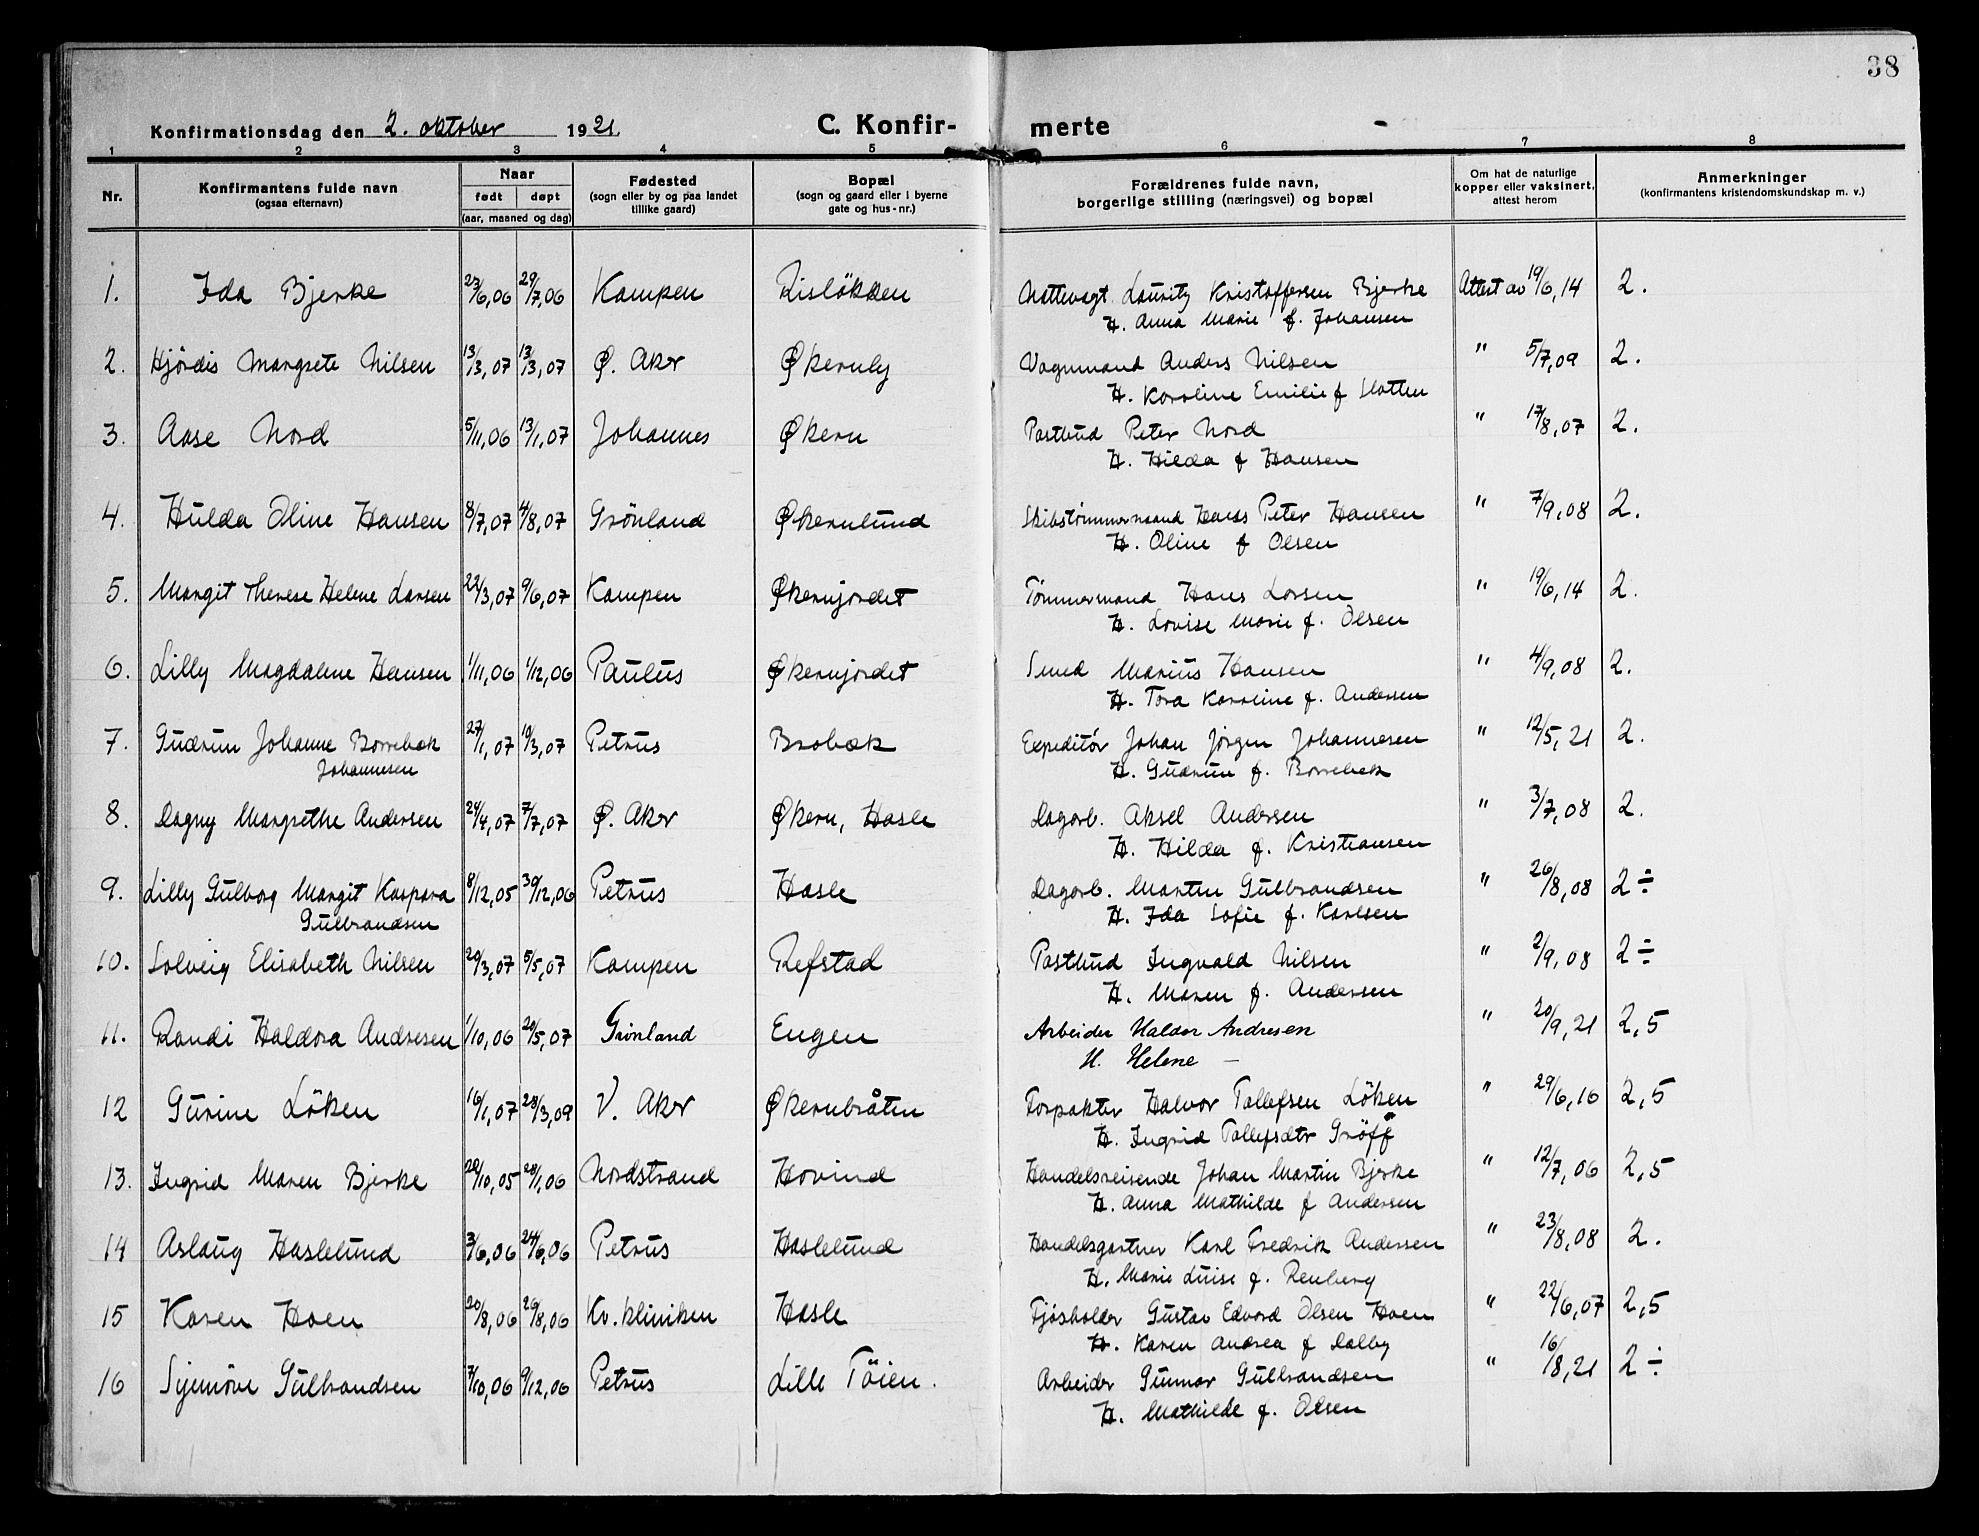 38
Konfirmationsdag den 2. oktober 1921.
C. Konfirmerte
1 2 3 4 5 6 7 8
Nr. Konfirmantens fulde navn (ogsaa efternavn) Naar født døpt (aar, maaned og dag) Fødested (sogn eller by og paa landet tillike gaard) Bopæl (sogn og gaard eller i byerne gate og hus-nr.) Forældrenes fulde navn, borgerlige stilling (næringsvei) og bopæl Om hat de naturlige kopper eller vaksinert, attest herom Anmerkninger (konfirmantens kristendomskundskap m. v.)
1. Ida Bjerke 27/6,06 29/7,06 Kampen Risløkken Nattevagt Lauritz Kristoffersen Bjerke Attest av 19/6,14 2.
H. Anna Marie f. Johansen
2. Hjördis Margrete Nilsen 13/3,07 13/3,07 Ø. Aker Økernly Vognmand Anders Nilsen " 5/7,09 2.
H. Karoline Emilie f Slatten
3. Aase Nord 5/11,06 13/1,07 Johannes Økern Postbud Peter Nord " 17/8,07 2.
H. Hilda f Hansen
4. Hulda Oline Hansen 8/7,07 4/8,07 Grönland Økernlund Skibstømmermand Hans Peter Hansen " 7/9,08 2.
H. Oline f Olsen
5. Margit Therese Helene Larsen 22/3,07 9/6,07 Kampen Økernjordet Tømmermand Hans Larsen " 19/6,14 2.
H. Lovise Marie f. Olsen
6. Lilly Magdalene Hansen 1/11,06 1/12,06 Paulus Økernjordet Smed Marius Hansen " 4/9,08 2.
H. Tora Karoline f. Andersen
7. Gudrun Johanne Borrebæk 27/1,07 19/3,07 Petrus Brobæk Expeditør Johan Jörgen Johannesen " 12/5,21 2.
Johannesen H. Gudrun f. Borrebæk
8. Dagny Margrethe Andersen 24/4,07 7/7,07 Ø. Aker Økern, Hasle Dagarb. Aksel Andersen " 3/7,08 2.
H. Hilda f. Kristiansen
9. Lilly Gulborg Margit Kaspara 8/12,05 30/12,06 Petrus Hasle Dagarb. Martin Gulbrandsen " 26/8,08 2÷
Gulbrandsen H. Ida Sofie f. Karlsen
10. Solveig Elisabeth Nilsen 20/3,07 5/5,07 Kampen Refstad Postbud Ingvald Nilsen " 2/9,08 2÷
H. Maren f. Andersen
11. Randi Haldora Andresen 1/10,06 20/5,07 Grönland Engen Arbeider Haldor Andresen " 20/9,21 2,5
H. Helene —
12 Gurine Löken 16/1,07 28/3,09 V. Aker Økernbråten Forpakter Halvor Tollefsen Löken " 29/6,16 2,5
H. Ingrid Tollefsdtr Gröff
13. Ingrid Maren Bjerke 20/10,05 28/1,06 Nordstrand Hovind Handelsreisende Johan Martin Bjerke " 12/7,06 2,5
H. Anna Mathilde f Andersen
14 Aslaug Haslelund 3/6,06 24/6,06 Petrus Haslelund Handelsgartner Karl Fredrik Andersen " 23/8,08 2.
H. Marie Luise f. Renberg
15 Karen Hoen 20/8,06 26/8,06 Kv. kliniken Hasle Fjösholder Gustav Edvard Olsen Hoen " 22/6,07 2,5
H. Karen Andrea f Dalby
16 Synnöve Gulbrandsen 7/10,06 9/12,06 Petrus Lille Töien. Arbeider Gunnar Gulbrandsen " 16/8,21 2÷
H. Mathilde f. Olsen